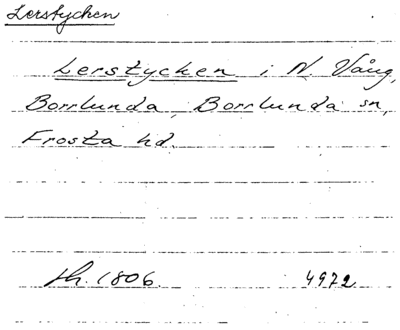 Lerstycken
Lerstycken i N. Vång,
Borrlunda, Borrlunda sn,
Frosta hd.
sh. 1806 4972